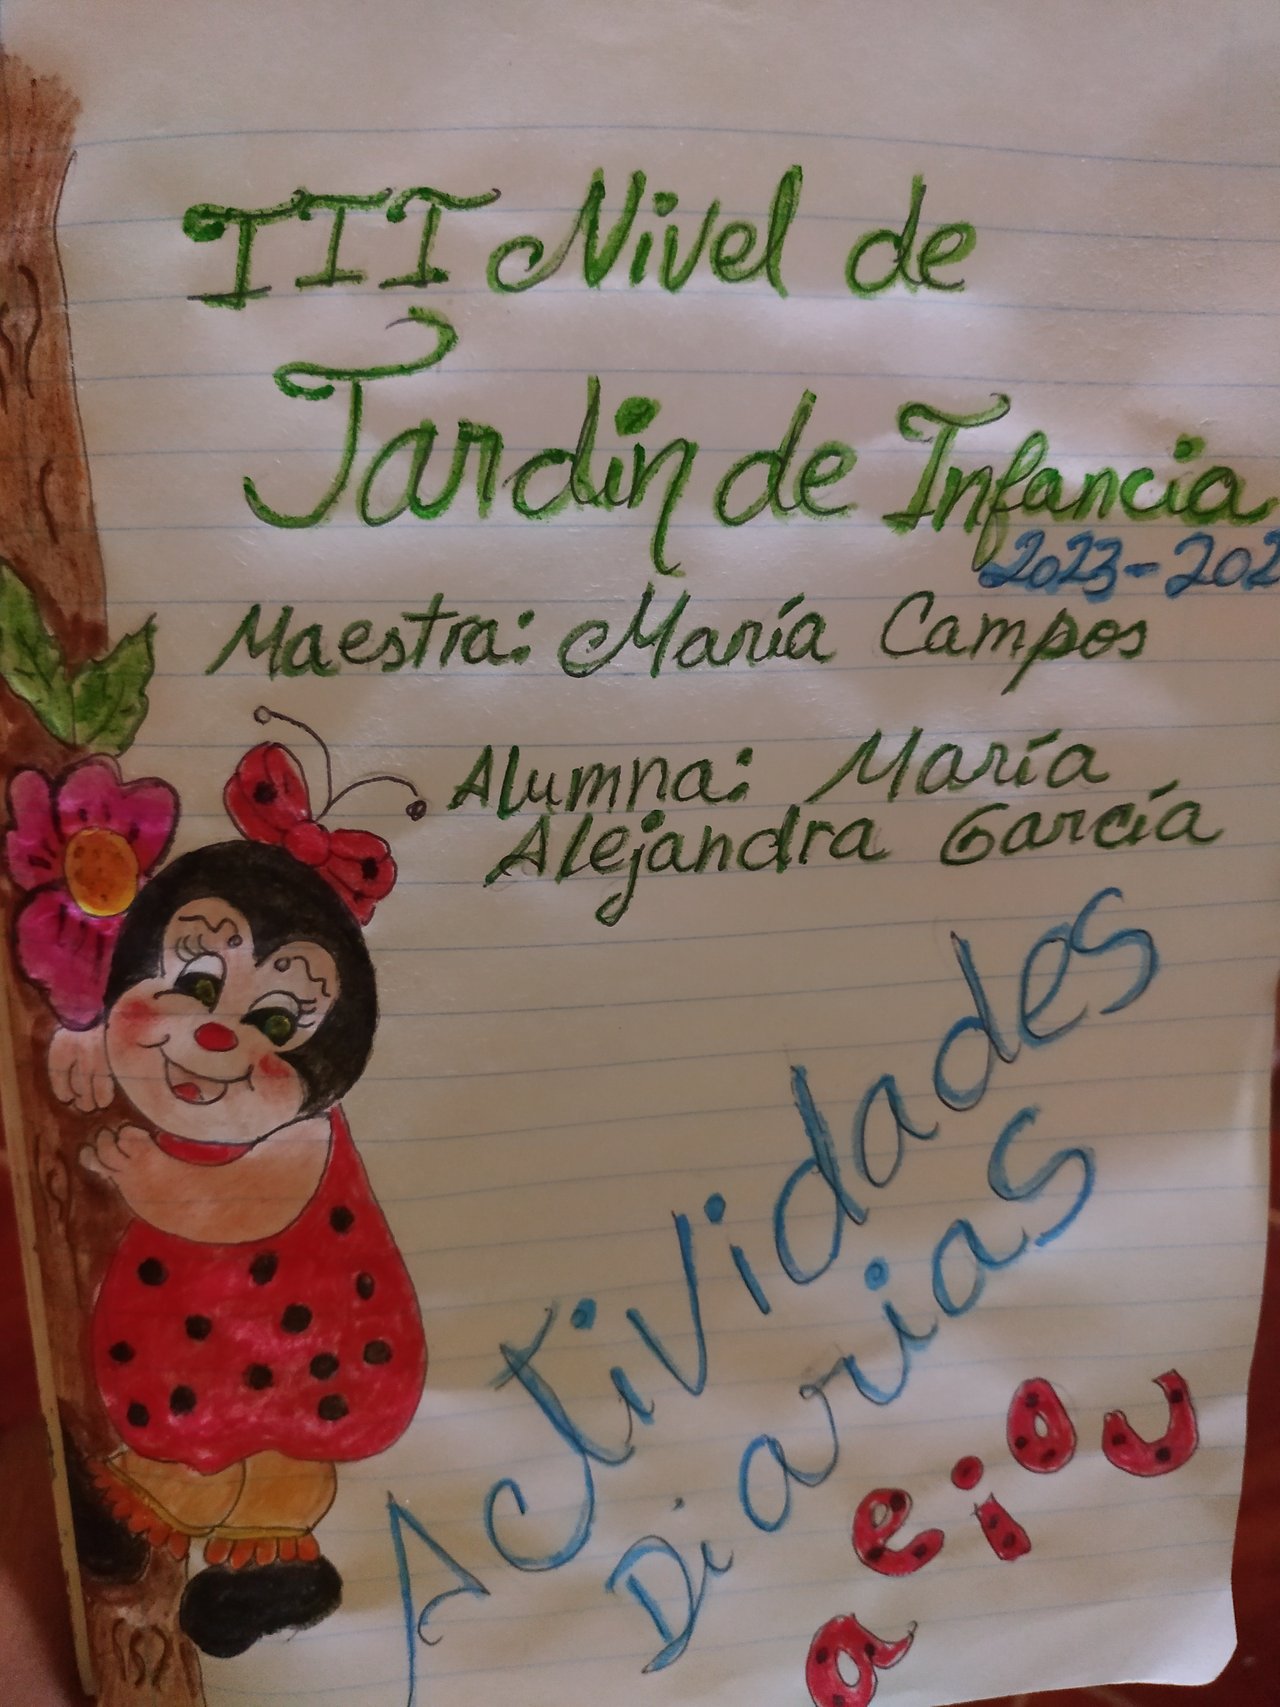 III Nivel de
Jardin de Infancia
2023-202
Maestra: María Campos
Alumna: María
Alejandra García
Actividades
Diarias
a e i o u